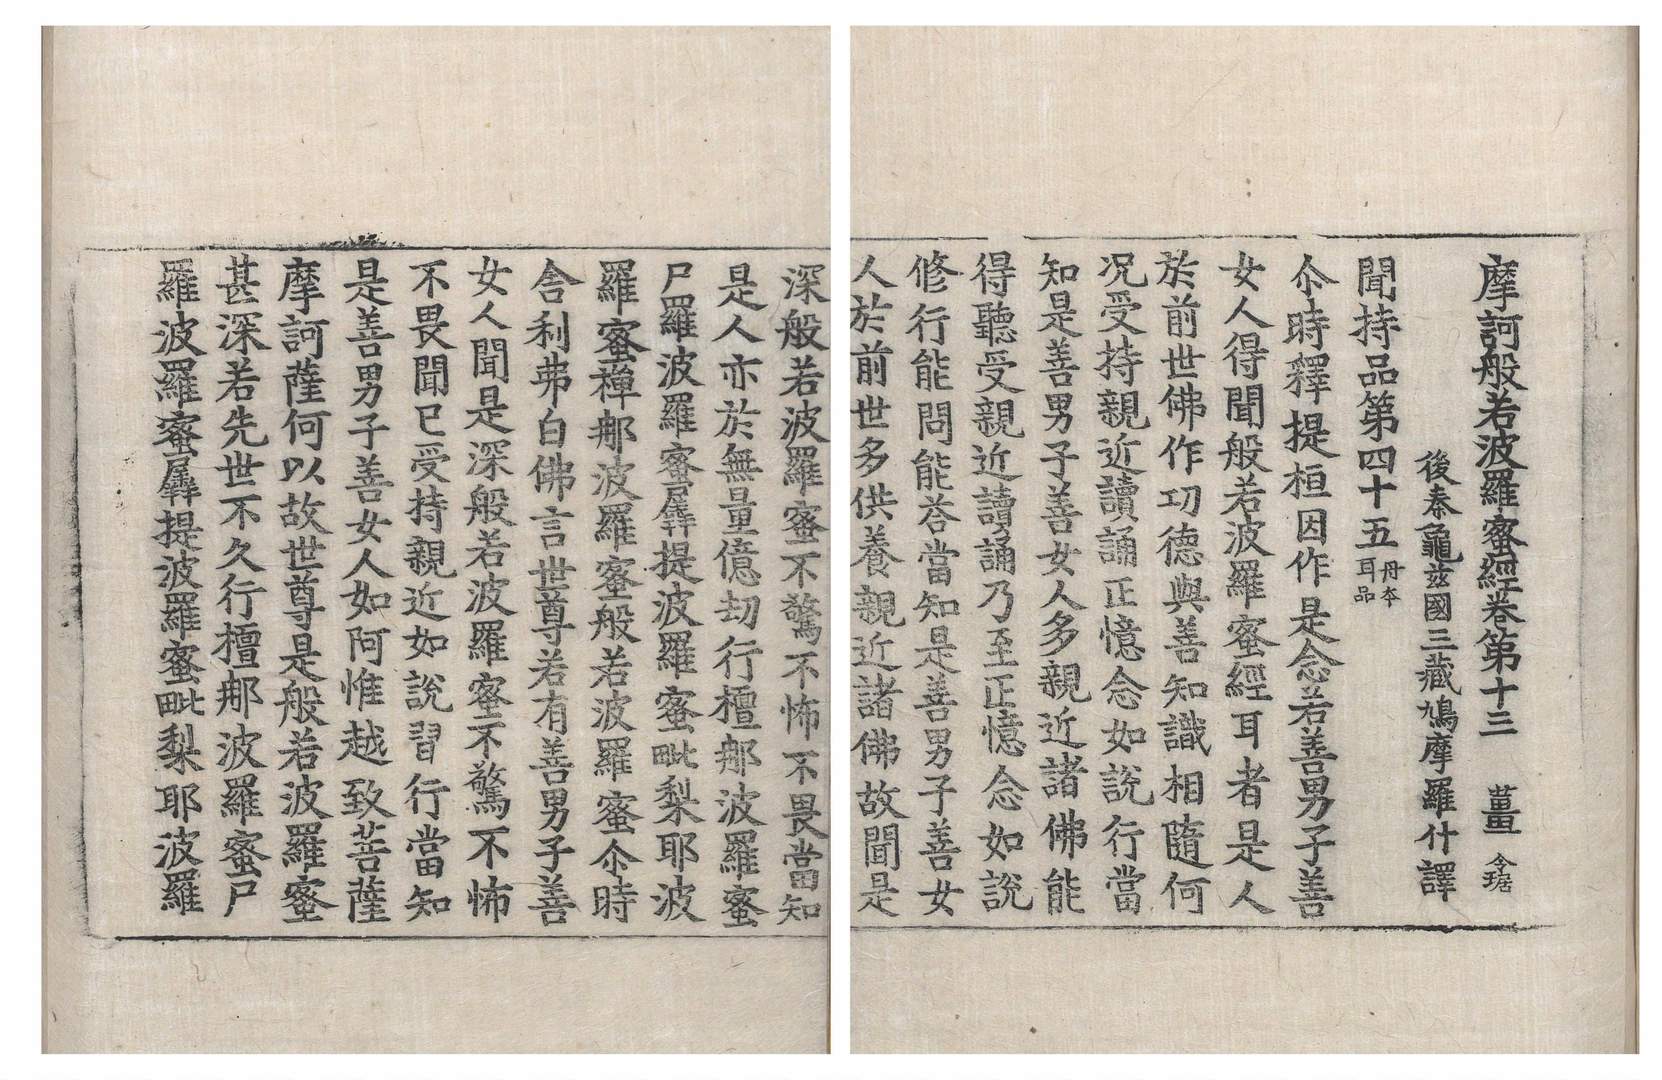 摩訶般若波羅蜜經卷第十三 薑
後秦龜茲國三藏鳩摩羅什譯
聞持品第四十五 丹本耳品
尒時釋提桓因作是念若善男子善
女人得聞般若波羅蜜經耳者是人
於前世佛作功德與善知識相隨何
況受持親近讀誦正憶念如說行當
知是善男子善女人多親近諸佛能
得聽受親近讀誦乃至正憶念如說
修行能問能荅當知是善男子善女
人於前世多供養親近諸佛故聞是
深般若波羅蜜不驚不怖不畏當知
是人亦於無量億劫行檀那波羅蜜
尸羅波羅蜜羼提波羅蜜毗梨耶波
羅蜜禪那波羅蜜般若波羅蜜尒時
舍利弗白佛言世尊若有善男子善
女人聞是深般若波羅蜜不驚不怖
不畏聞已受持親近如說習行當知
是善男子善女人如阿惟越致菩薩
摩訶薩何以故世尊是般若波羅蜜
甚深若先世不久行檀那波羅蜜尸
羅波羅蜜羼提波羅蜜毗梨耶波羅